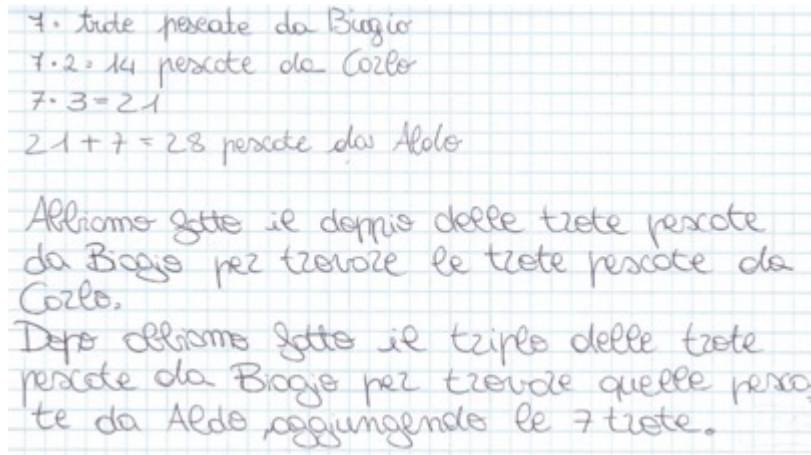 7. trote pescate da Biagio
7·2=14 pescate da Carlo
7·3=21
21+7=28 pescate da Aldo
Abbiamo fatto il doppio delle trote pescate
da Biagio per trovare le trote pescate da
Carlo.
Dopo abbiamo fatto il triplo delle trote
pescate da Biagio per trovare quelle pesca
te da Aldo, aggiungendo le 7 trote.